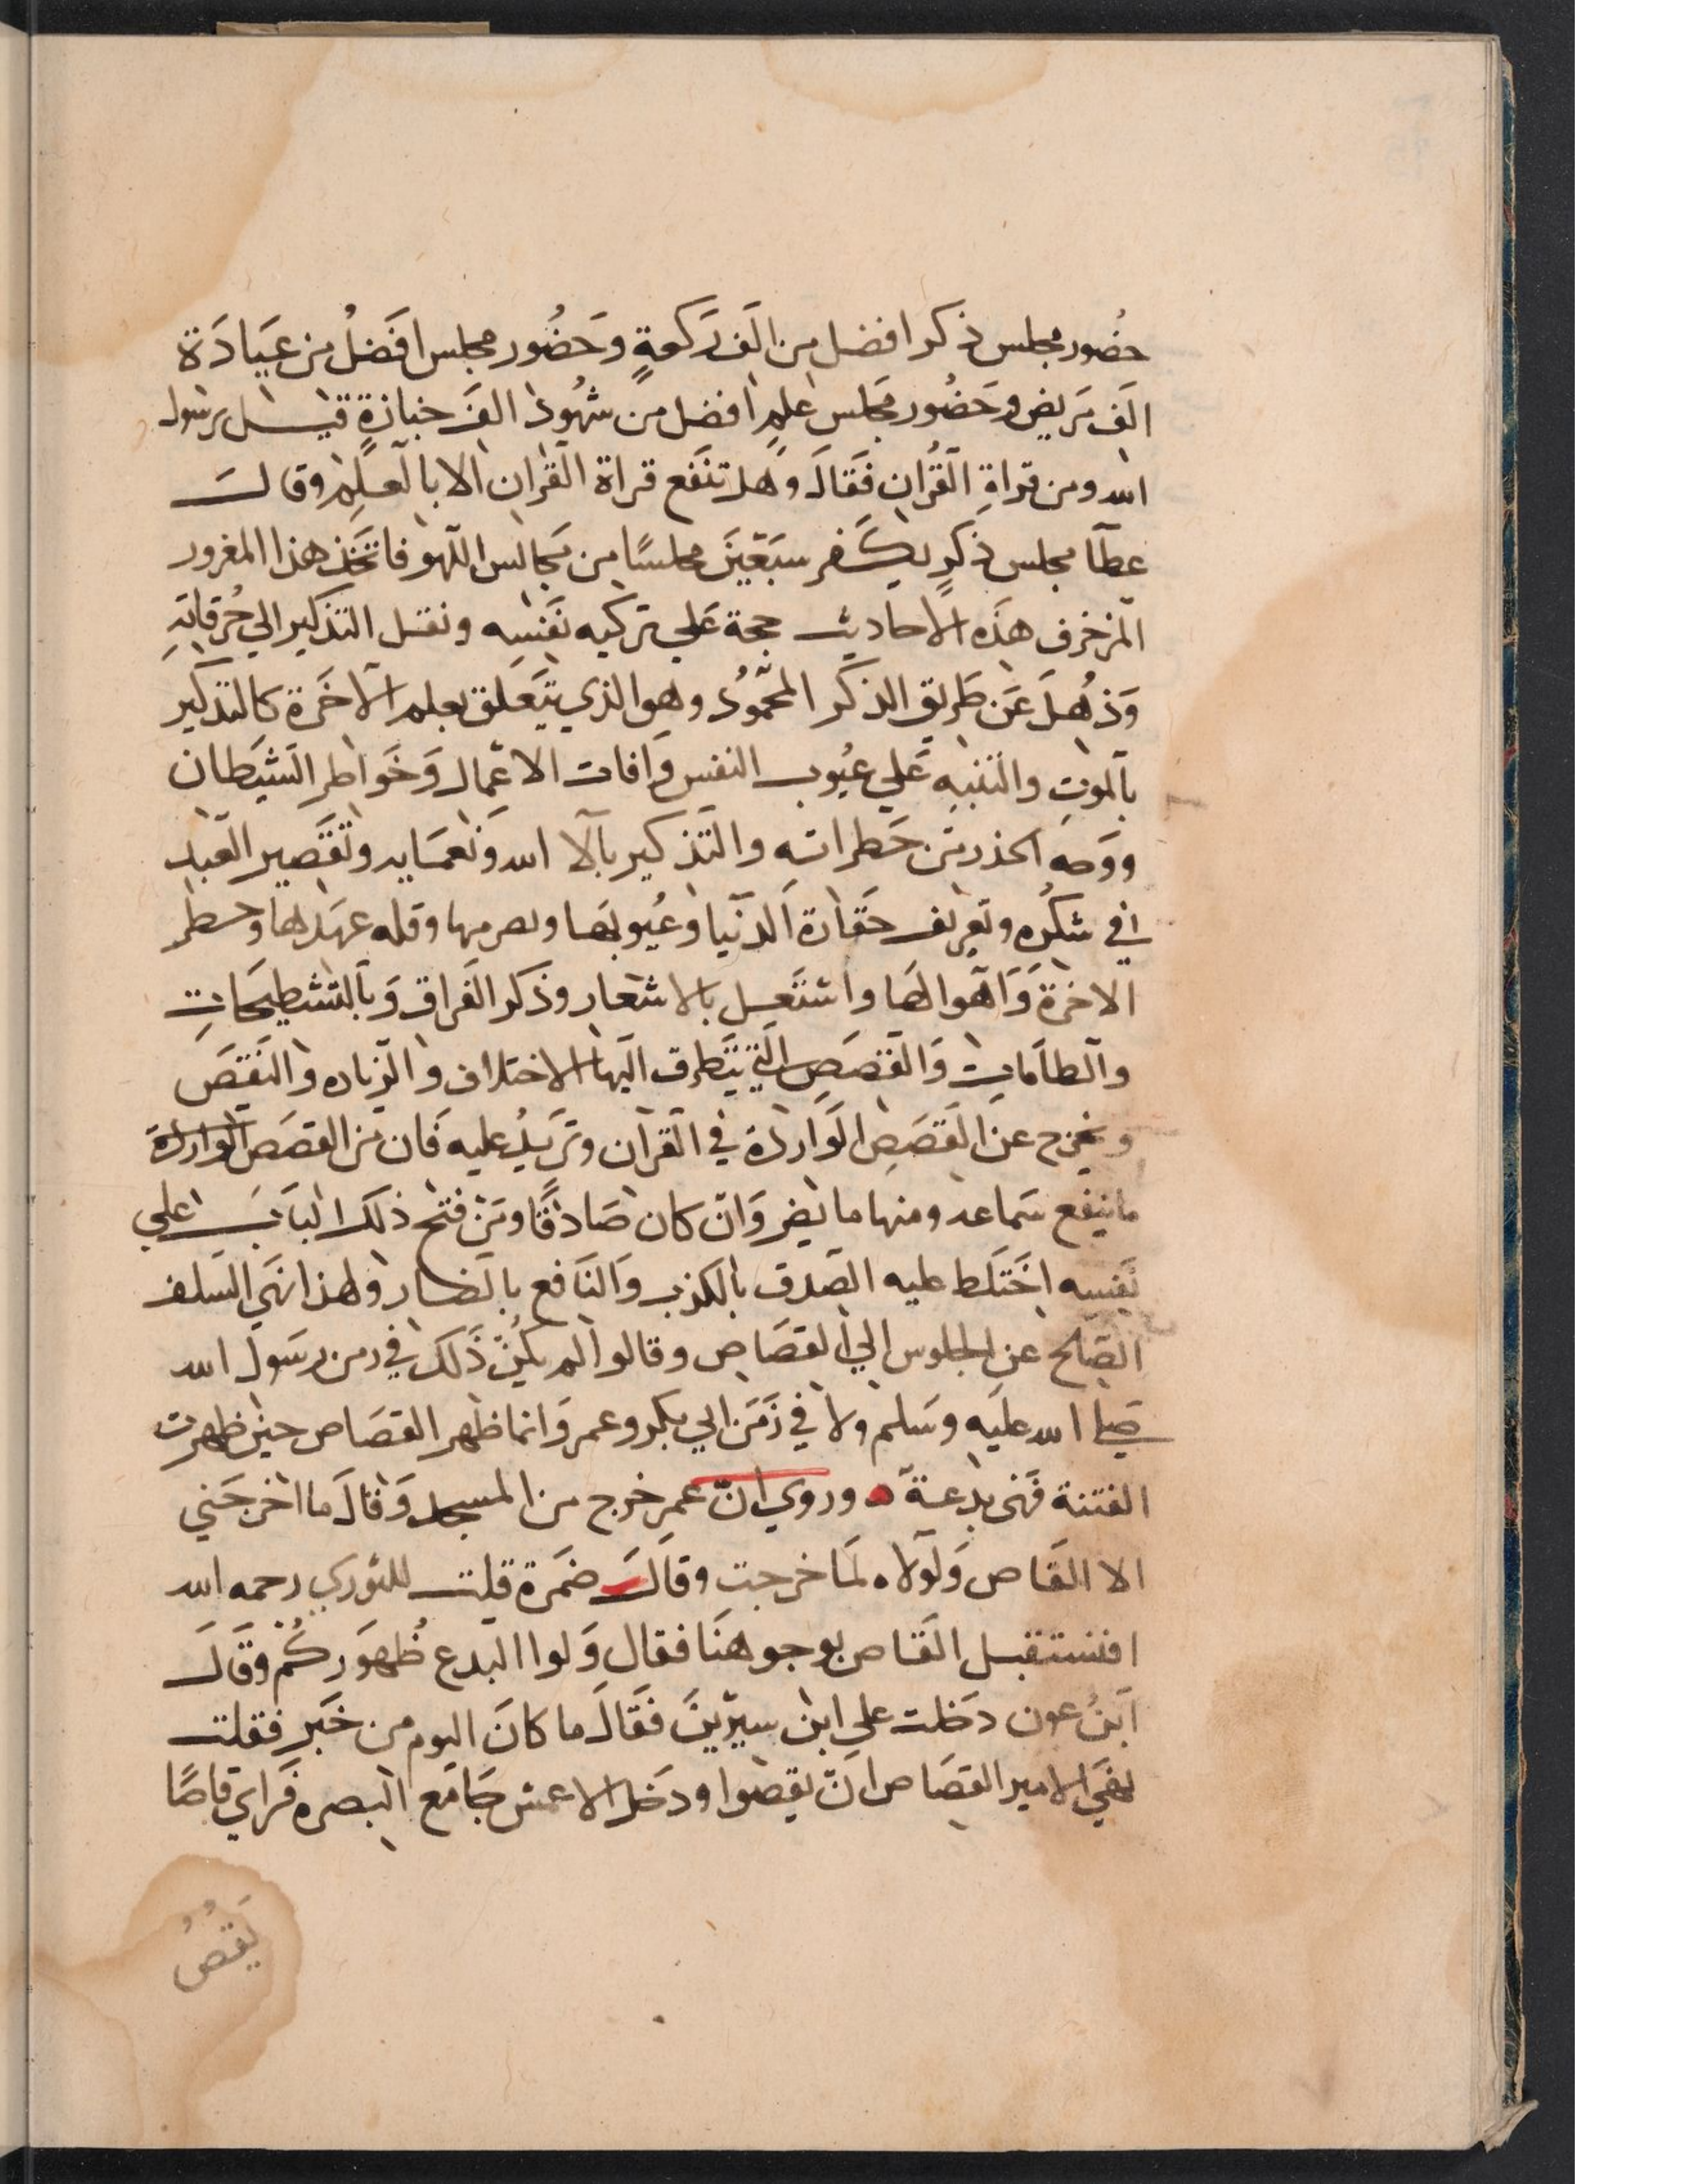 حضور مجلس ذكر افضل من الف ركعة وحضور مجلس افضل من عيادة
الف مريض وحضور مجلس علم افضل من شهود الف جنازة قيل يرسول
الله ومن قراة القران فقال وهل تنفع قراة القران الا بالعلم وقال
عطا مجلس ذكر يكفر سبعين مجلسا من مجالس اللهو فاتخذ هذا المغرور
المزخرف هذه الاحاديث حجة علي تزكيه نفسه ونقل التذكير الي خرقاته
وذهل عن طريق الذكر المحمود وهو الذي يتعلق بعلم الاخرة كالتذكير
بالموت والتنبيه علي عيوب النفس وافات الاعمال وخواطر الشيطان
ووجه الحذر من خطراته والتذكير بآلا الله ونعمايه وتقصير العبد
في شكره وتعريف حقارة الدنيا وعيوبها وتصرمها وقله عهدها وخطر
الاخرة واهوالها واشتغل بالاشعار وذكر الفراق وبالشطحات
والطامات والقصص التي يتطرق اليها الاختلاف والزياده والنقص
ويخرج عن القصص الواردة في القران وتزيد عليه فان من القصص الواردة
ما ينفع سماعه ومنها ما يضر وان كان صادقا ومن فتح ذلك الباب علي
نفسه اختلط عليه الصدق بالكذب والنافع بالضار ولهذا نهي السلف
الصلح عن الجلوس الي القصاص وقالوا لم يكن ذلك في زمن رسول الله
صلي الله عليه وسلم ولا في زمن ابي بكر وعمر وانما ظهر القصاص حين ظهرت
الفتنة فهي بدعة وروي ان عمر خرج من المسجد وقال ما اخرجني
الا القاص ولولاه لما خرجت وقال ضمرة قلت للثوري رحمه الله
افنستقبل القاص بوجوهنا فقال ولوا البدع ظهوركم وقال
ابن عون دخلت علي ابن سيرين فقال ما كان اليوم من خبر فقلت
نهي الامير القصاص ان يقصوا ودخل الاعمش جامع البصره فراي قاصا
يقص